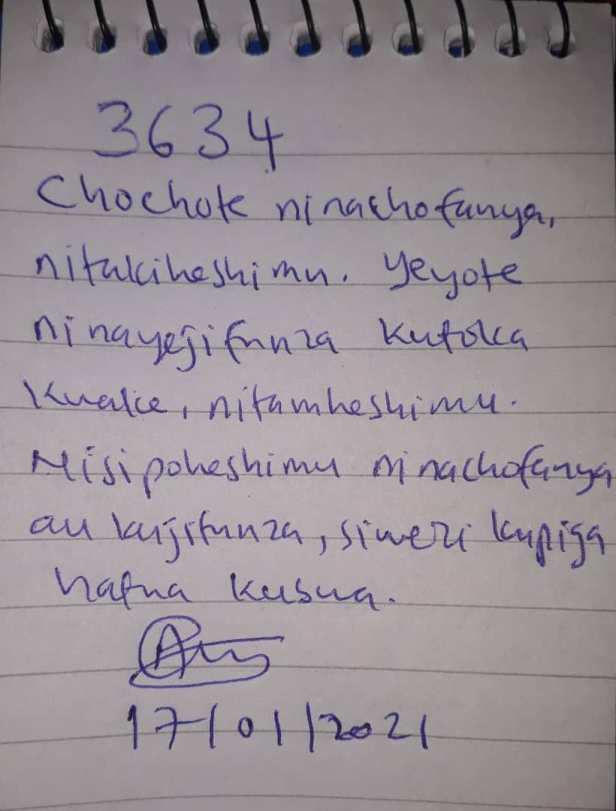 3634
Chochote ninachofanya,
nitakiheshimu. Yeyote
ninayejifunza kutoka
kwake, nitamheshimu.
Nisipoheshimu ninachofanya
au kujifunza, siwezi kupiga
hatua kubwa.
17/01/2021